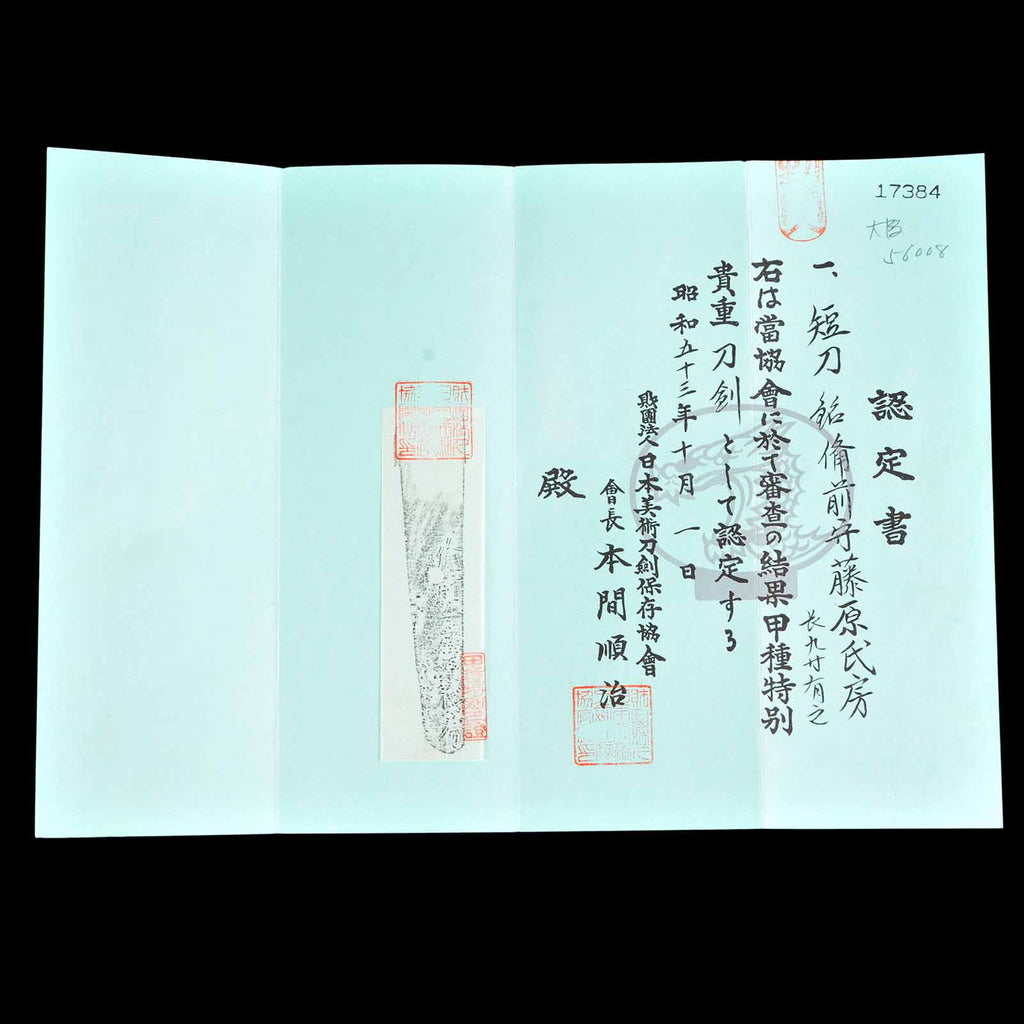 17384
56008
認定書
一、短刀 銘備前守藤原氏房
長九寸有之
右は當協會に於て審査の結果甲種特別
貴重刀剣として認定する
昭和五十三年十月一日
財團法人日本美術刀劍保存協會
會長 本間順治
殿